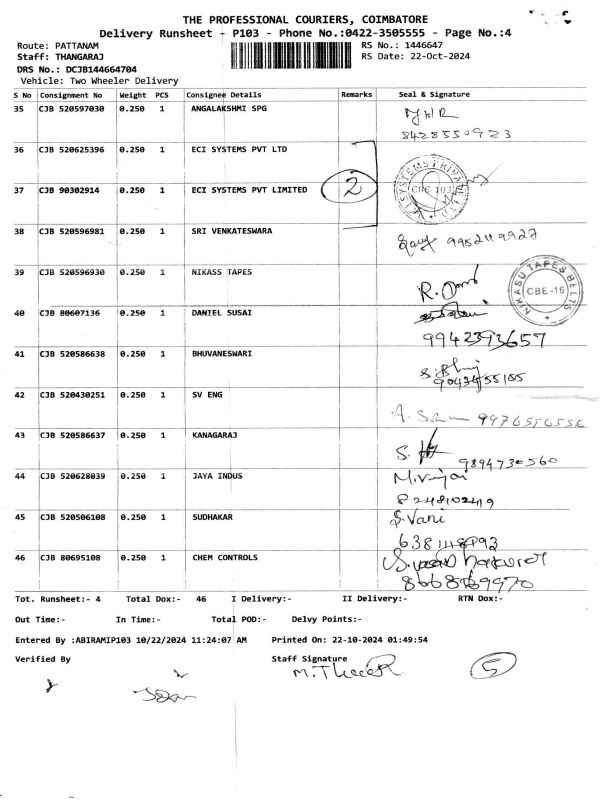 THE PROFESSIONAL COURIERS, COIMBATORE
Delivery Runsheet - P103 - Phone No.:0422-3505555 - Page No.:4
Route: PATTANAM RS No.: 1446647
Staff: THANGARAJ RS Date: 22-Oct-2024
DRS No.: DCJB144664704
Vehicle: Two Wheeler Delivery
S No Consignment No Weight PCS Consignee Details Remarks Seal & Signature
35 CJB 520597030 0.250 1 ANGALAKSHMI SPG
8428550923
36 CJB 520625396 0.250 1 ECI SYSTEMS PVT LTD
37 CJB 90302914 0.250 1 ECI SYSTEMS PVT LIMITED 2 CBE-103
38 CJB 520596981 0.250 1 SRI VENKATESWARA
9952119927
39 CJB 520596930 0.250 1 NIKASS TAPES
NIKASU TAPES BELTS CBE-16
40 CJB 80607136 0.250 1 DANIEL SUSAI
9942393657
41 CJB 520586638 0.250 1 BHUVANESWARI
42 CJB 520430251 0.250 1 SV ENG
43 CJB 520586637 0.250 1 KANAGARAJ
9894730560
44 CJB 520628039 0.250 1 JAYA INDUS
8248102419
45 CJB 520506108 0.250 1 SUDHAKAR S.Vani
46 CJB 80695108 0.250 1 CHEM CONTROLS
Tot. Runsheet:- 4 Total Dox:- 46 I Delivery:- II Delivery:- RTN Dox:-
Out Time:- In Time:- Total POD:- Delvy Points:-
Entered By :ABIRAMIP103 10/22/2024 11:24:07 AM Printed On: 22-10-2024 01:49:54
Verified By Staff Signature 5